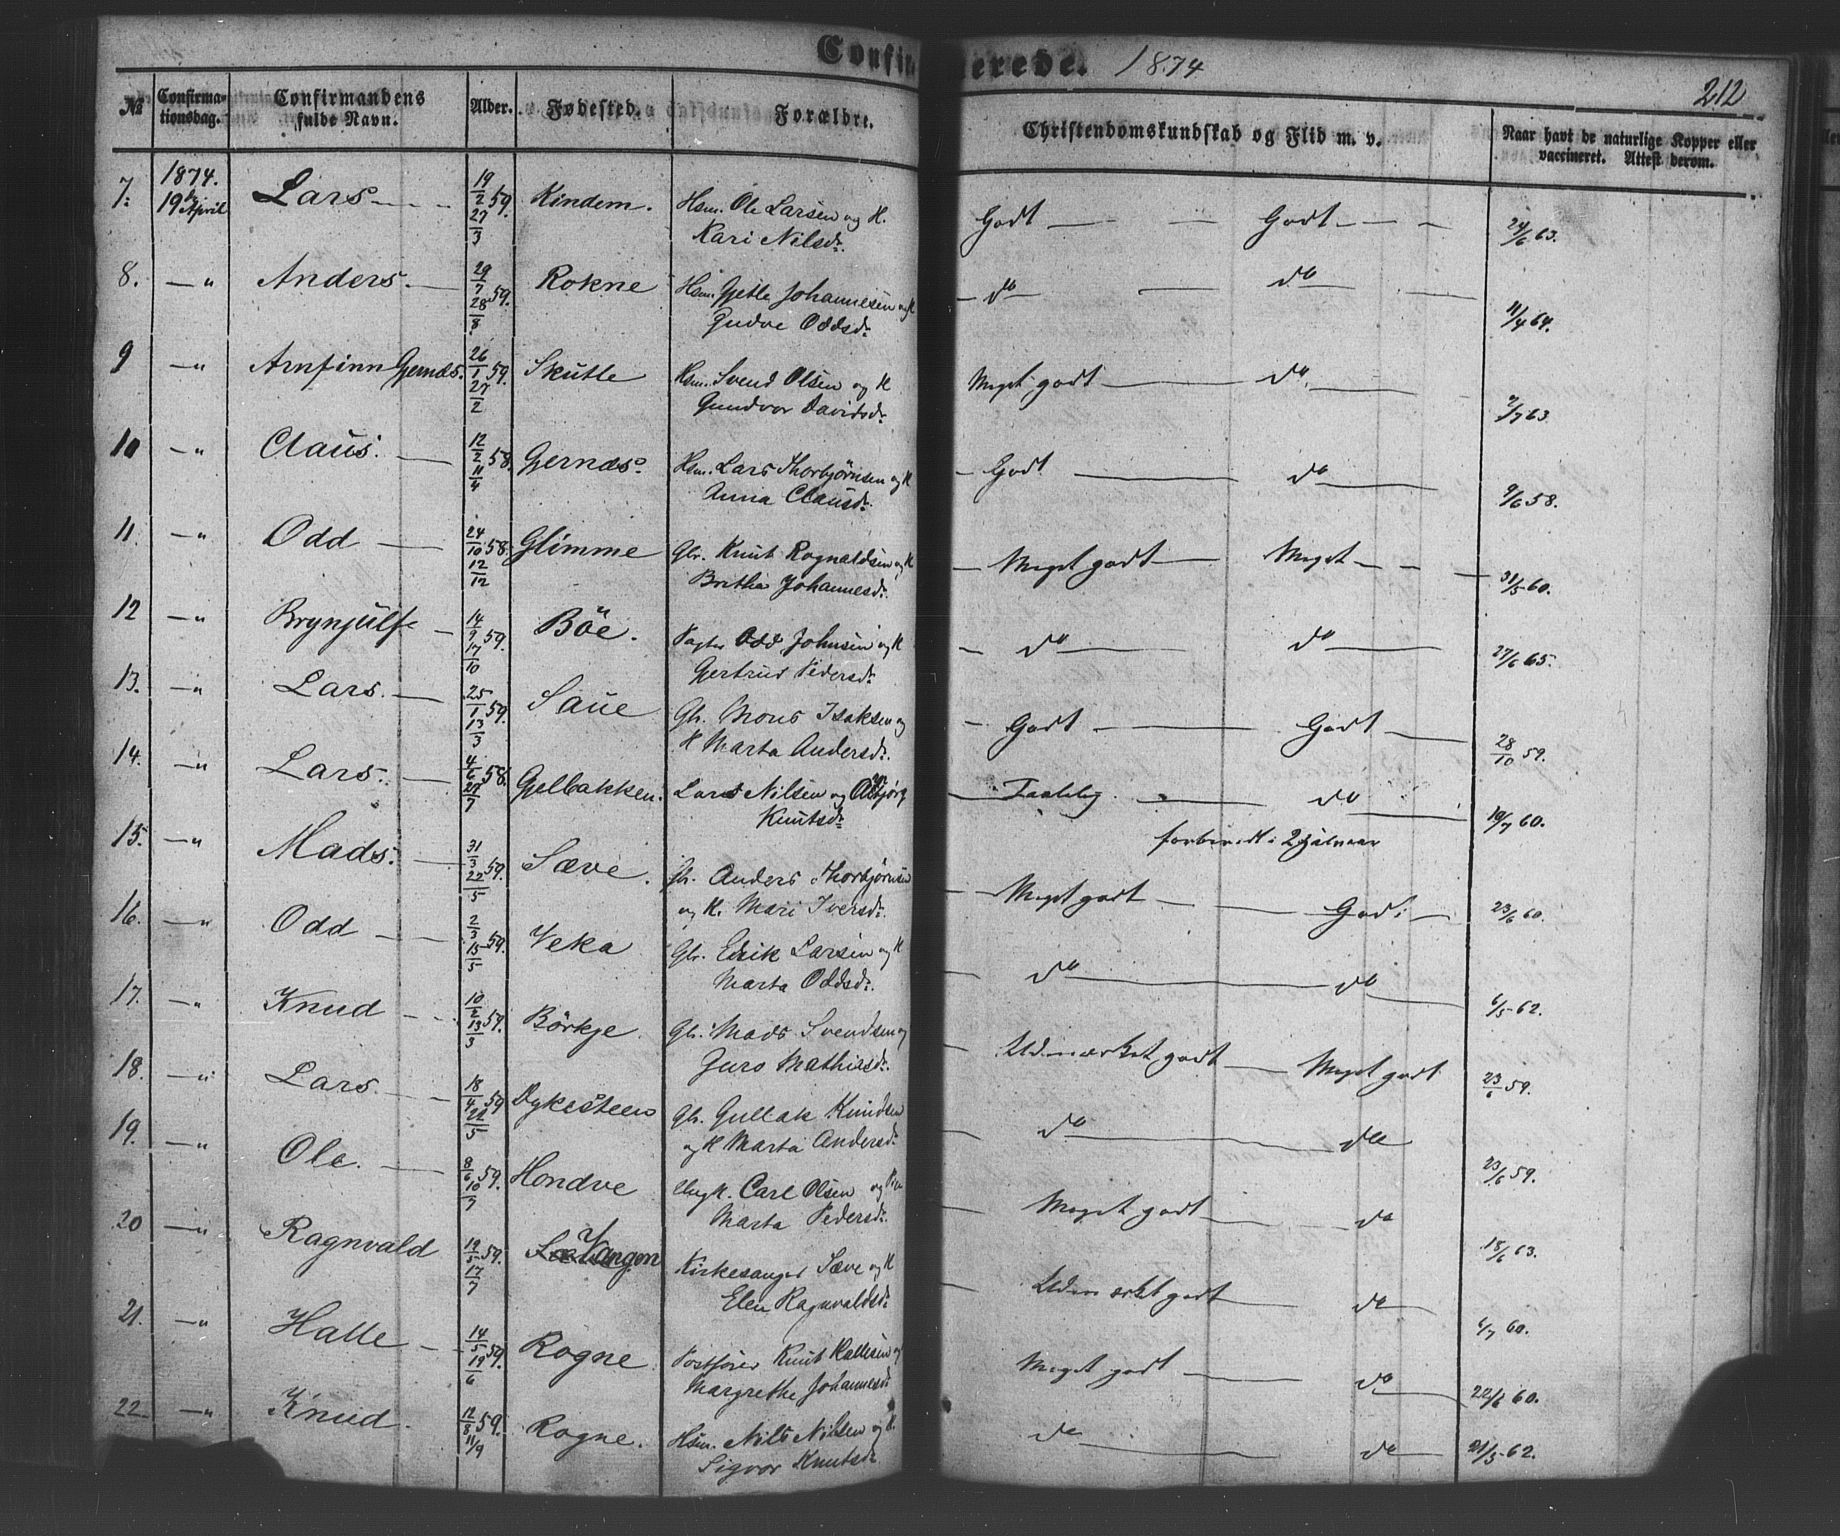 Confirmerede. 1874
212
№ Confirmationsdag. Confirmandens fulde Navn. Alder. Fødested. Forældre. Christendomskundskab og Flid m. v. Naar havt de naturlige Kopper eller vaccineret. Attest derom.
7. 1874. 19de April Lars 19/2 59. 27/3 Kindem. Hsm. Ole Larsen og K. Godt Godt 24/6 63.
Kari Nilsdr.
8. " Anders. 29/7 59. 28/8 Rokne Hsm. Gjetle Johannesen og K do do 11/4 64.
Gudve Oddsdr
9 " Arnfinn Gernæs. 26/1 59. 27/2 Skutle Hsm. Svend Olsen og K Meget godt do 2/7 63
Gundvor Davidsdr
10 " Claus. 12/2 58. 11/4 Gernæs. Hsm. Lars Thorbjørnsen og K Godt do 9/6 58.
Anna Clausdr.
11. " Odd 24/10 58. 12/12 Glimme Gbr. Knut Rognaldsen og K Meget godt Meget 31/5 60.
Britha Johannesdr.
12 " Brynjulf 14/9 59. 17/10 Böe. Pagter Odd Johnsen og K do do 27/6 65.
Gertrud Pedersdr
13. " Lars. 25/1 59. 13/3 Saue Gbr. Mons Isaksen og Godt Godt 28/10 59.
K Marta Andersdr.
14. " Lars. 4/6 58. 27/7 Gjelbakken. Lars Nilsen og Asbjørg Taalelig do 19/7 60.
Knutsdr
forberedt i 2
15. " Mads. 31/3 59. 22/5 Sæve. Gbr. Anders Thorbjørnsen Meget godt Godt 23/6 60.
og K. Mari Iversdr.
16. " Odd 2/3 59. 15/5 Veka Gbr. Erik Larsen og K do do 6/5 62.
Marta Oddsdr.
17. " Knud 10/2 59. 13/3 Börkje. Gbr. Mads Svendsen og Udmærket godt Meget godt 23/6 59.
Guro Mathiasdr.
18. " Lars 18/4 59 22/5 Dykesteen Gbr. Gullak Knudsen do do 23/6 59.
og K Marta Andersdr
19. " Ole. 8/6 59. 10/7 Hondve Ungk. Carl Olsen og Meget godt do 18/6 63.
Marta Pedersdr.
20 " Ragnvald 19/5 59. 17/7 Vangen Kirkesanger Sæve og K Udmærket godt do 6/7 60.
Elen Ragnvaldsdr
21. " Halle 14/5 59. 19/6 Rogne Postfører Knut Hallesen og Meget godt do 22/6 60.
Margrethe Johannesdr
22. " Knud. 12/8 59. 11/9 Rogne. Hsm. Nils Nilsen og K. do do 21/5 62.
Sigvor Knutsdr